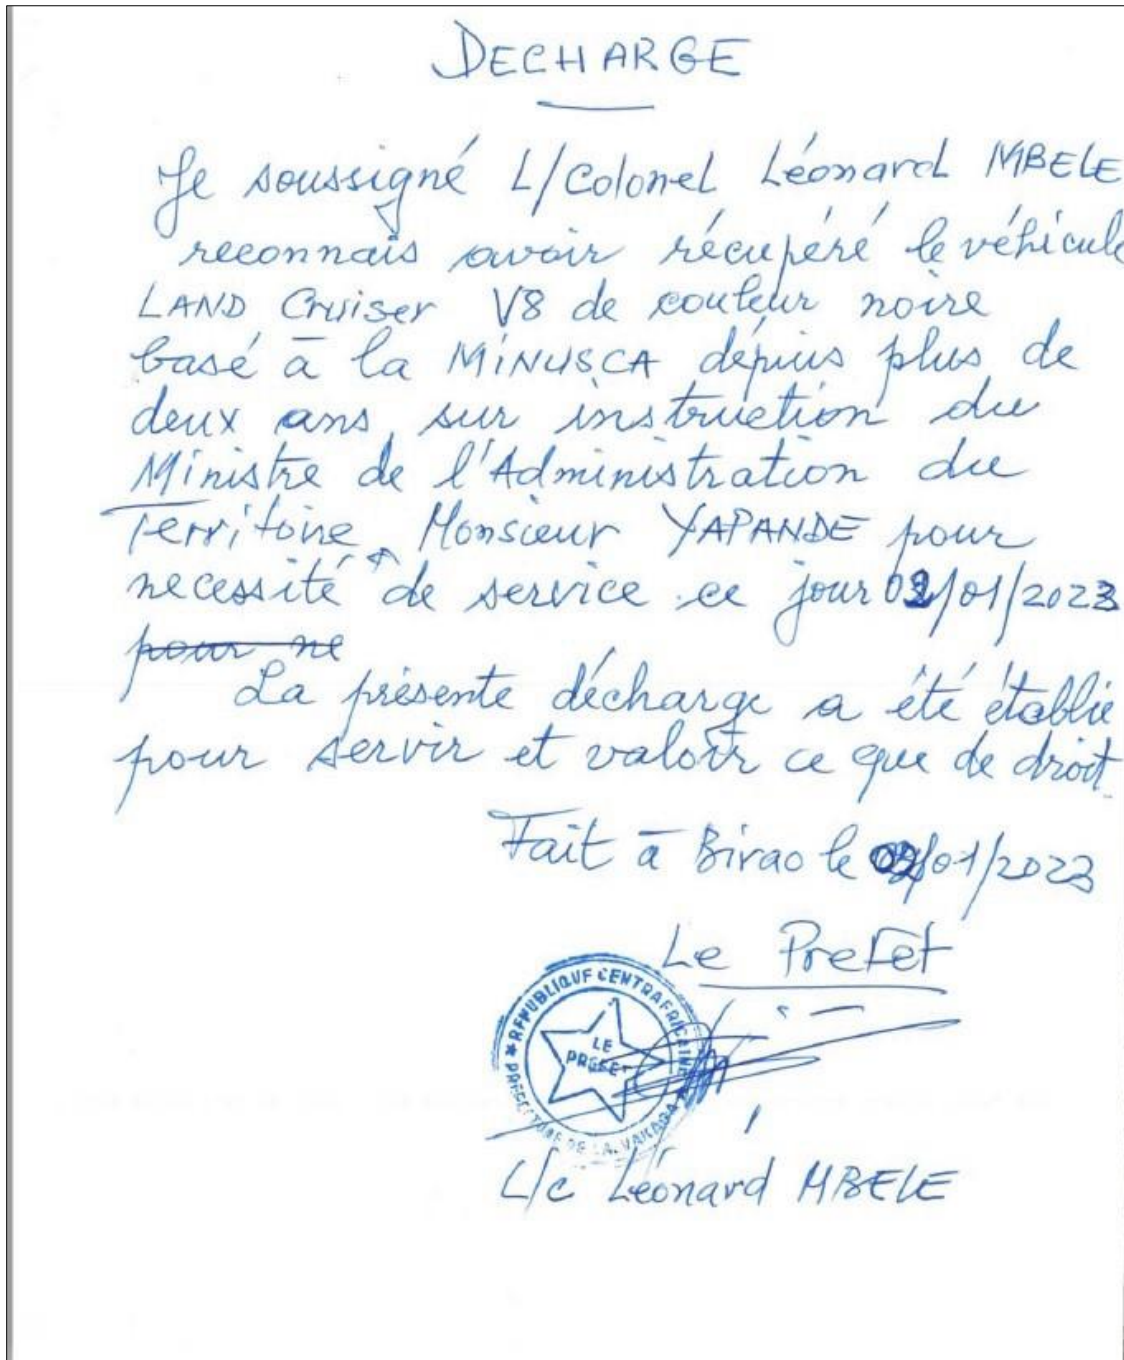 DECHARGE
Je soussigné L/Colonel Léonard MBELE
reconnais avoir récupéré le véhicule
LAND Cruiser V8 de couleur noire
basé à la MINUSCA dépuis plus de
deux ans sur instruction du
Ministre de l'Administration du
Territoire Monsieur YAPANDE pour
necessité de service ce jour 02/01/2023
pour ne
La présente décharge a été établie
pour servir et valoir ce que de droit.
Fait à Birao le 02/01/2023
Le Prefet
REPUBLIQUE CENTRAFRICAINE
LE
PREFET
PREFECTURE DE LA VAKAGA
L/c Léonard MBELE